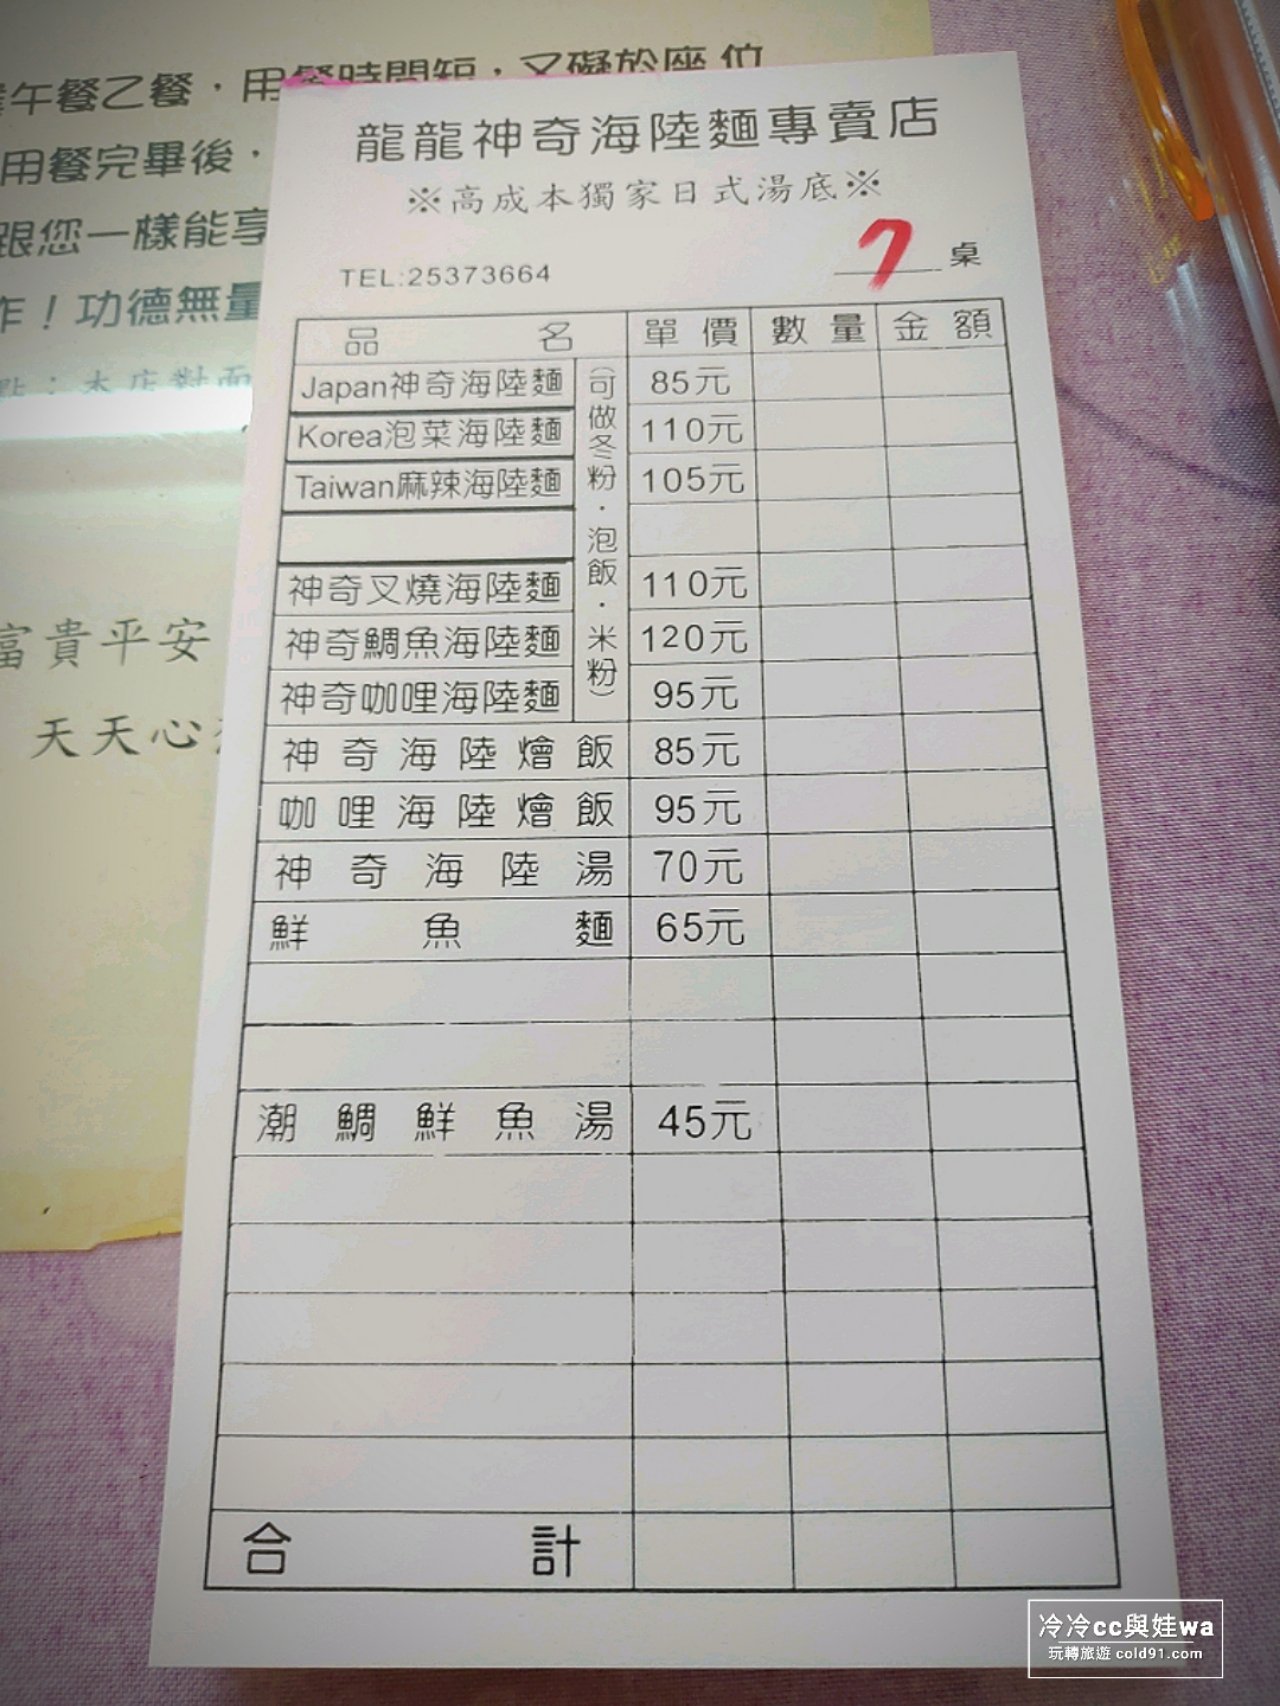 業午餐乙餐，用餐時間短，又礙於座位
用餐完畢後，
跟您一樣能享
作！功德無量
點：本店對面
富貴平安
天天心
龍龍神奇海陸麵專賣店
※高成本獨家日式湯底※
TEL:25373664
7桌
品名 單價 數量 金額
Japan神奇海陸麵 85元
Korea泡菜海陸麵 110元
Taiwan麻辣海陸麵 105元
神奇叉燒海陸麵 110元
神奇鯛魚海陸麵 120元
神奇咖哩海陸麵 95元
（可做冬粉．泡飯．米粉）
神奇海陸燴飯 85元
咖哩海陸燴飯 95元
神奇海陸湯 70元
鮮魚麵 65元
潮鯛鮮魚湯 45元
合計
冷冷cc與娃wa
玩轉旅遊 cold91.com